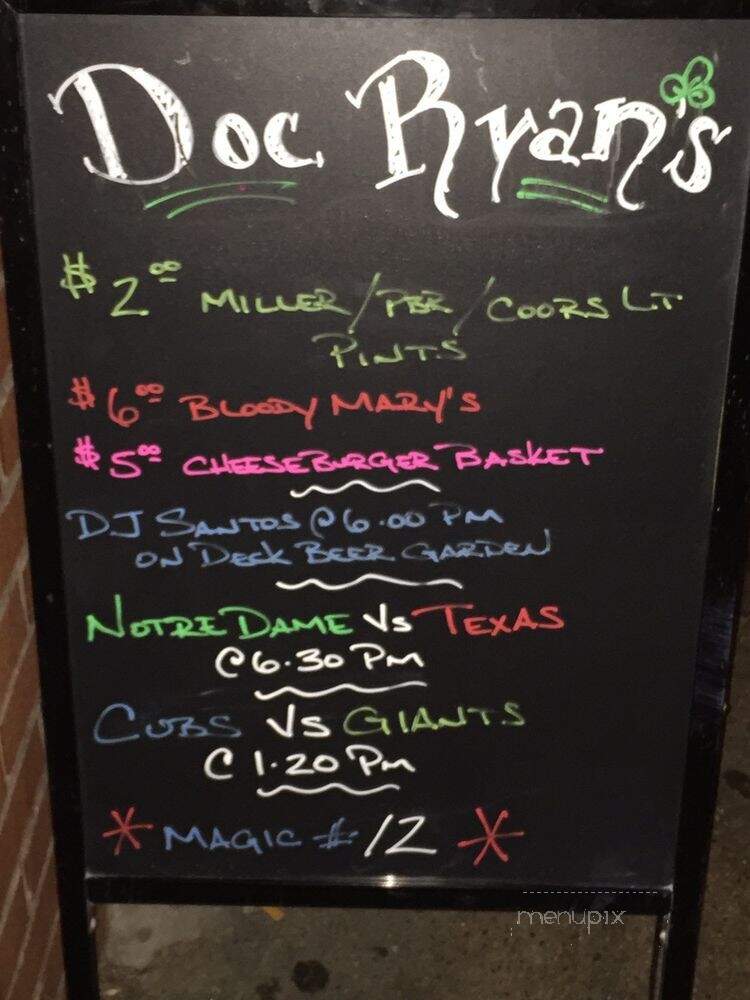 Doc Ryan's
$2.00 MILLER/PBR/COORS LT
PINTS
$6.00 BLOODY MARY'S
$5.00 CHEESEBURGER BASKET
DJ SANTOS @ 6.00 PM
ON DECK BEER GARDEN
NOTRE DAME Vs TEXAS
@ 6.30 PM
CUBS Vs GIANTS
@ 1.20 PM
* MAGIC #: 12 *
menupix